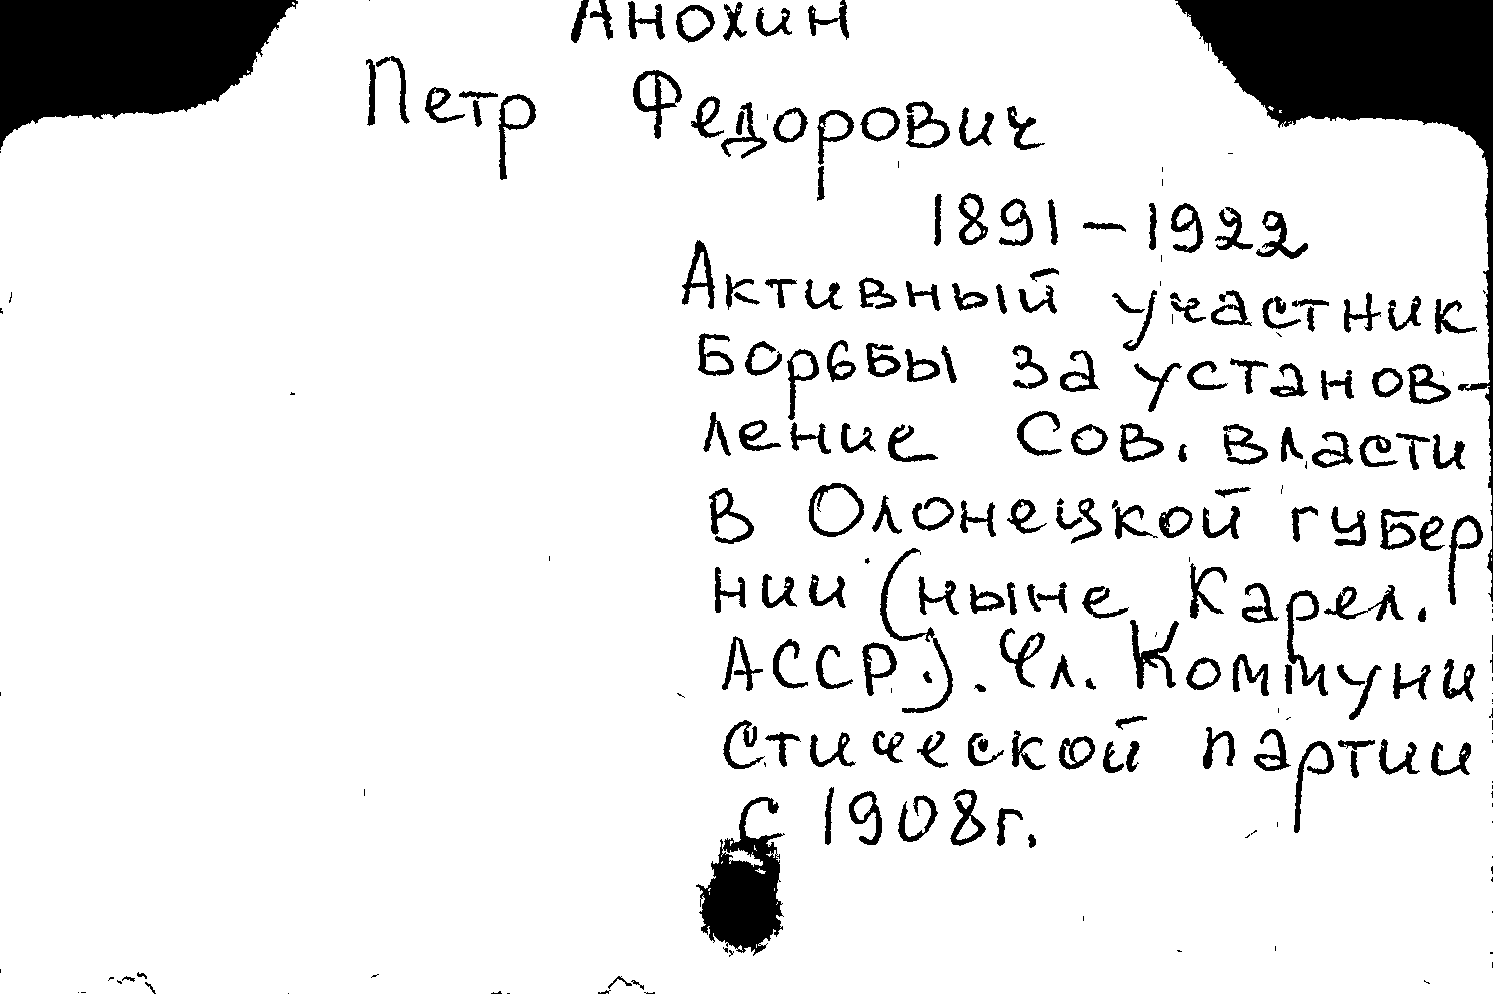 Анохин
Петр Федорович
1891-1922
Активный участник
борьбы за установ-
ление Сов. власти
в Олонецкой губер
нии (ныне Карел.
АССР.). Чл. Коммуни
стической партии
с 1908г.